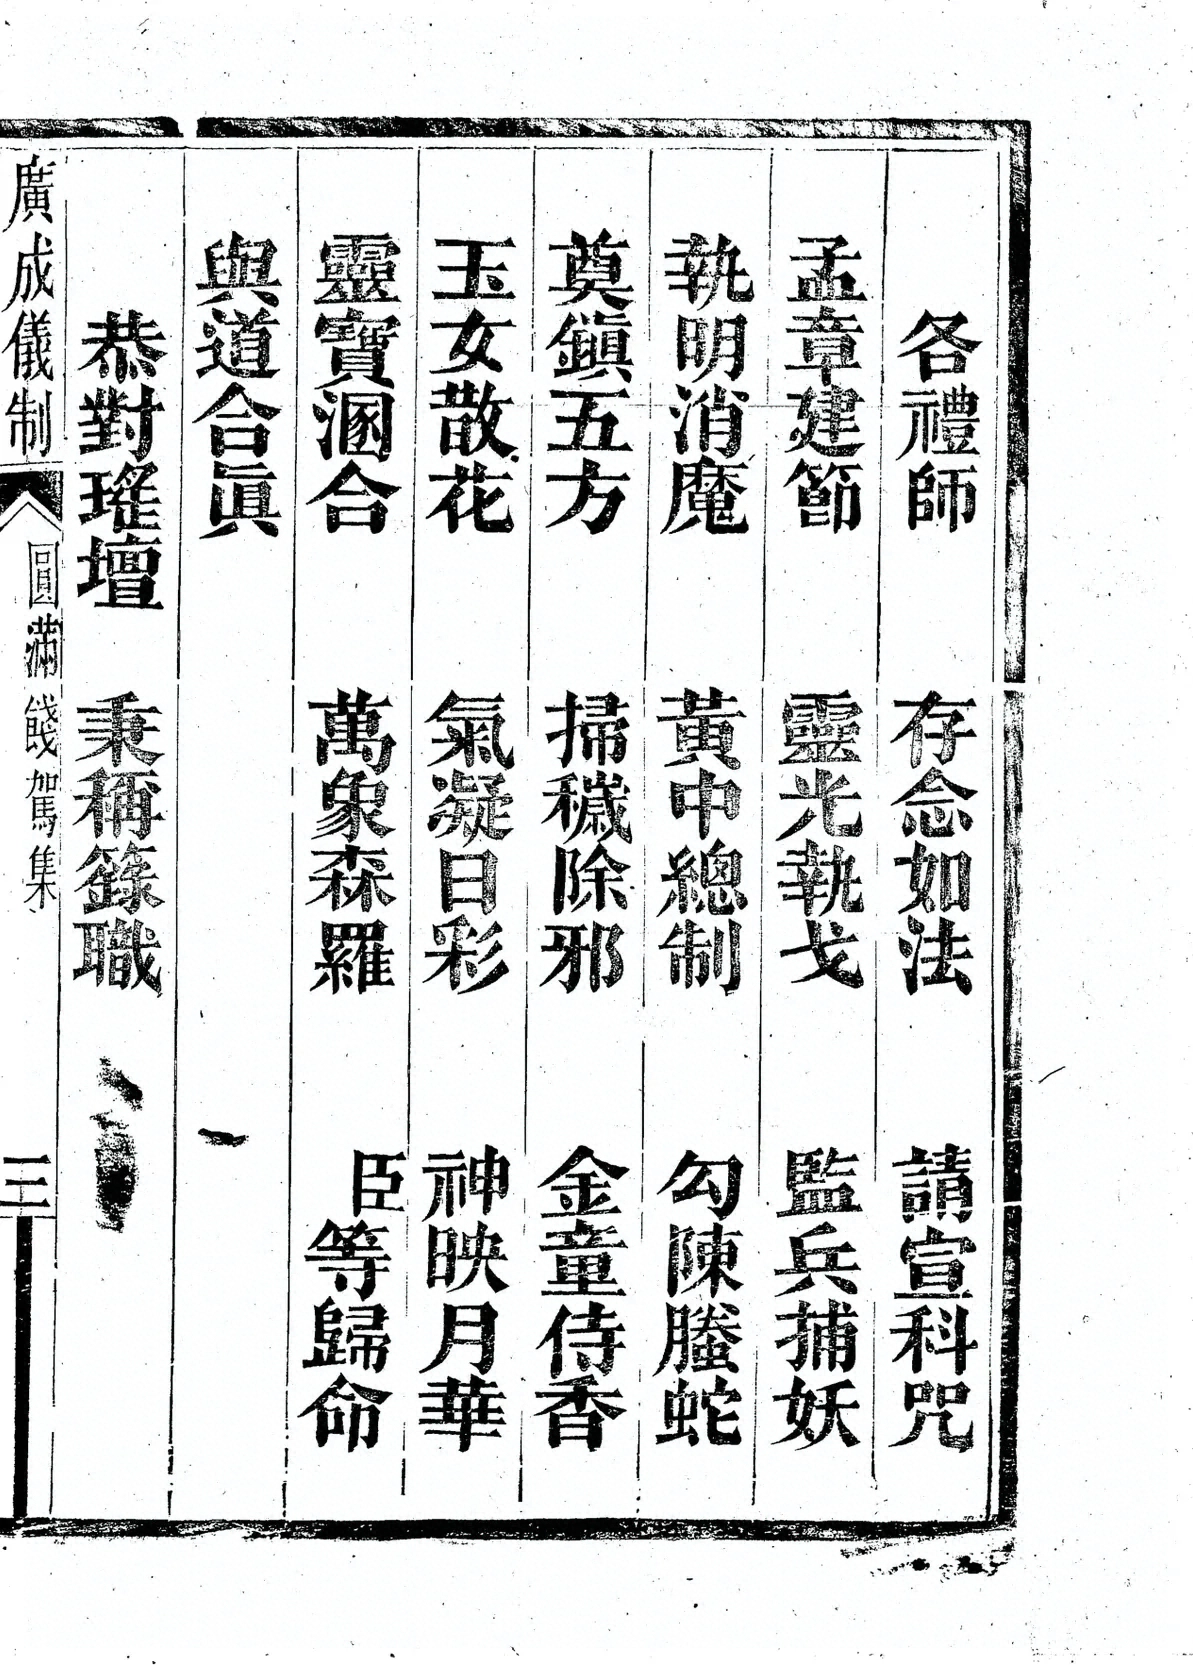 各禮師　存念如法　請宣科咒
孟章建節　靈光執戈　監兵捕妖
執明消魔　黃中總制　勾陳螣蛇
奠鎮五方　掃穢除邪　金童侍香
玉女散花　氣凝日彩　神映月華
靈寶溷合　萬象森羅　臣等歸命
與道合眞
恭對瑤壇　秉稱籙職
廣成儀制　圓滿餞駕集　三